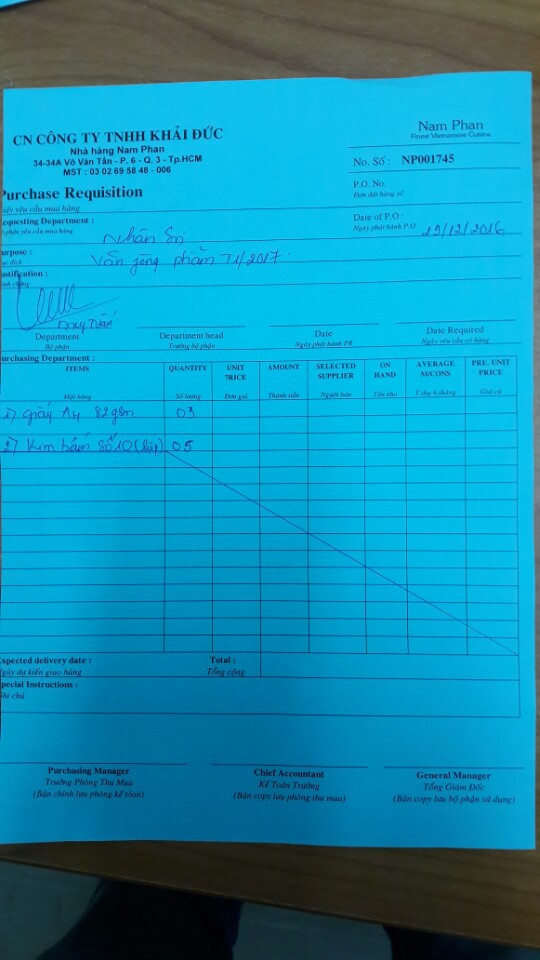 CN CÔNG TY TNHH KHẢI ĐỨC
Nhà hàng Nam Phan
34-34A Võ Văn Tần - P. 6 - Q. 3 - Tp.HCM
MST : 03 02 69 58 48 - 006
Nam Phan
Finest Vietnamese Cuisine
No. Số : NP001745
Purchase Requisition
Giấy yêu cầu mua hàng
P.O. No.
Đơn đặt hàng số
Requesting Department :
Bộ phận yêu cầu mua hàng
Nhân Sự
Date of P.O :
Ngày phát hành P.O
29/12/2016
Purpose :
Mục đích
Văn fòng phẩm T1/2017.
Justification :
Duy Tuấn
Department
Bộ phận
Department head
Trưởng bộ phận
Date
Ngày phát hành PR
Date Required
Ngày yêu cầu có hàng
Purchasing Department :
ITEMS
Mặt hàng
QUANTITY
Số lượng
UNIT PRICE
Đơn giá
AMOUNT
Thành tiền
SELECTED SUPPLIER
Người bán
ON HAND
Tồn kho
AVERAGE M/CONS
T.thụ h/tháng
PRE. UNIT PRICE
Giá cũ
1) giấy A4 82gsm 03
2) Kim bấm Số 10 (hộp) 05
Expected delivery date :
Ngày dự kiến giao hàng
Total :
Tổng cộng
Special Instructions :
Ghi chú
Purchasing Manager
Trưởng Phòng Thu Mua
(Bản chính lưu phòng kế toán)
Chief Accountant
Kế Toán Trưởng
(Bản copy lưu phòng thu mua)
General Manager
Tổng Giám Đốc
(Bản copy lưu bộ phận sử dụng)